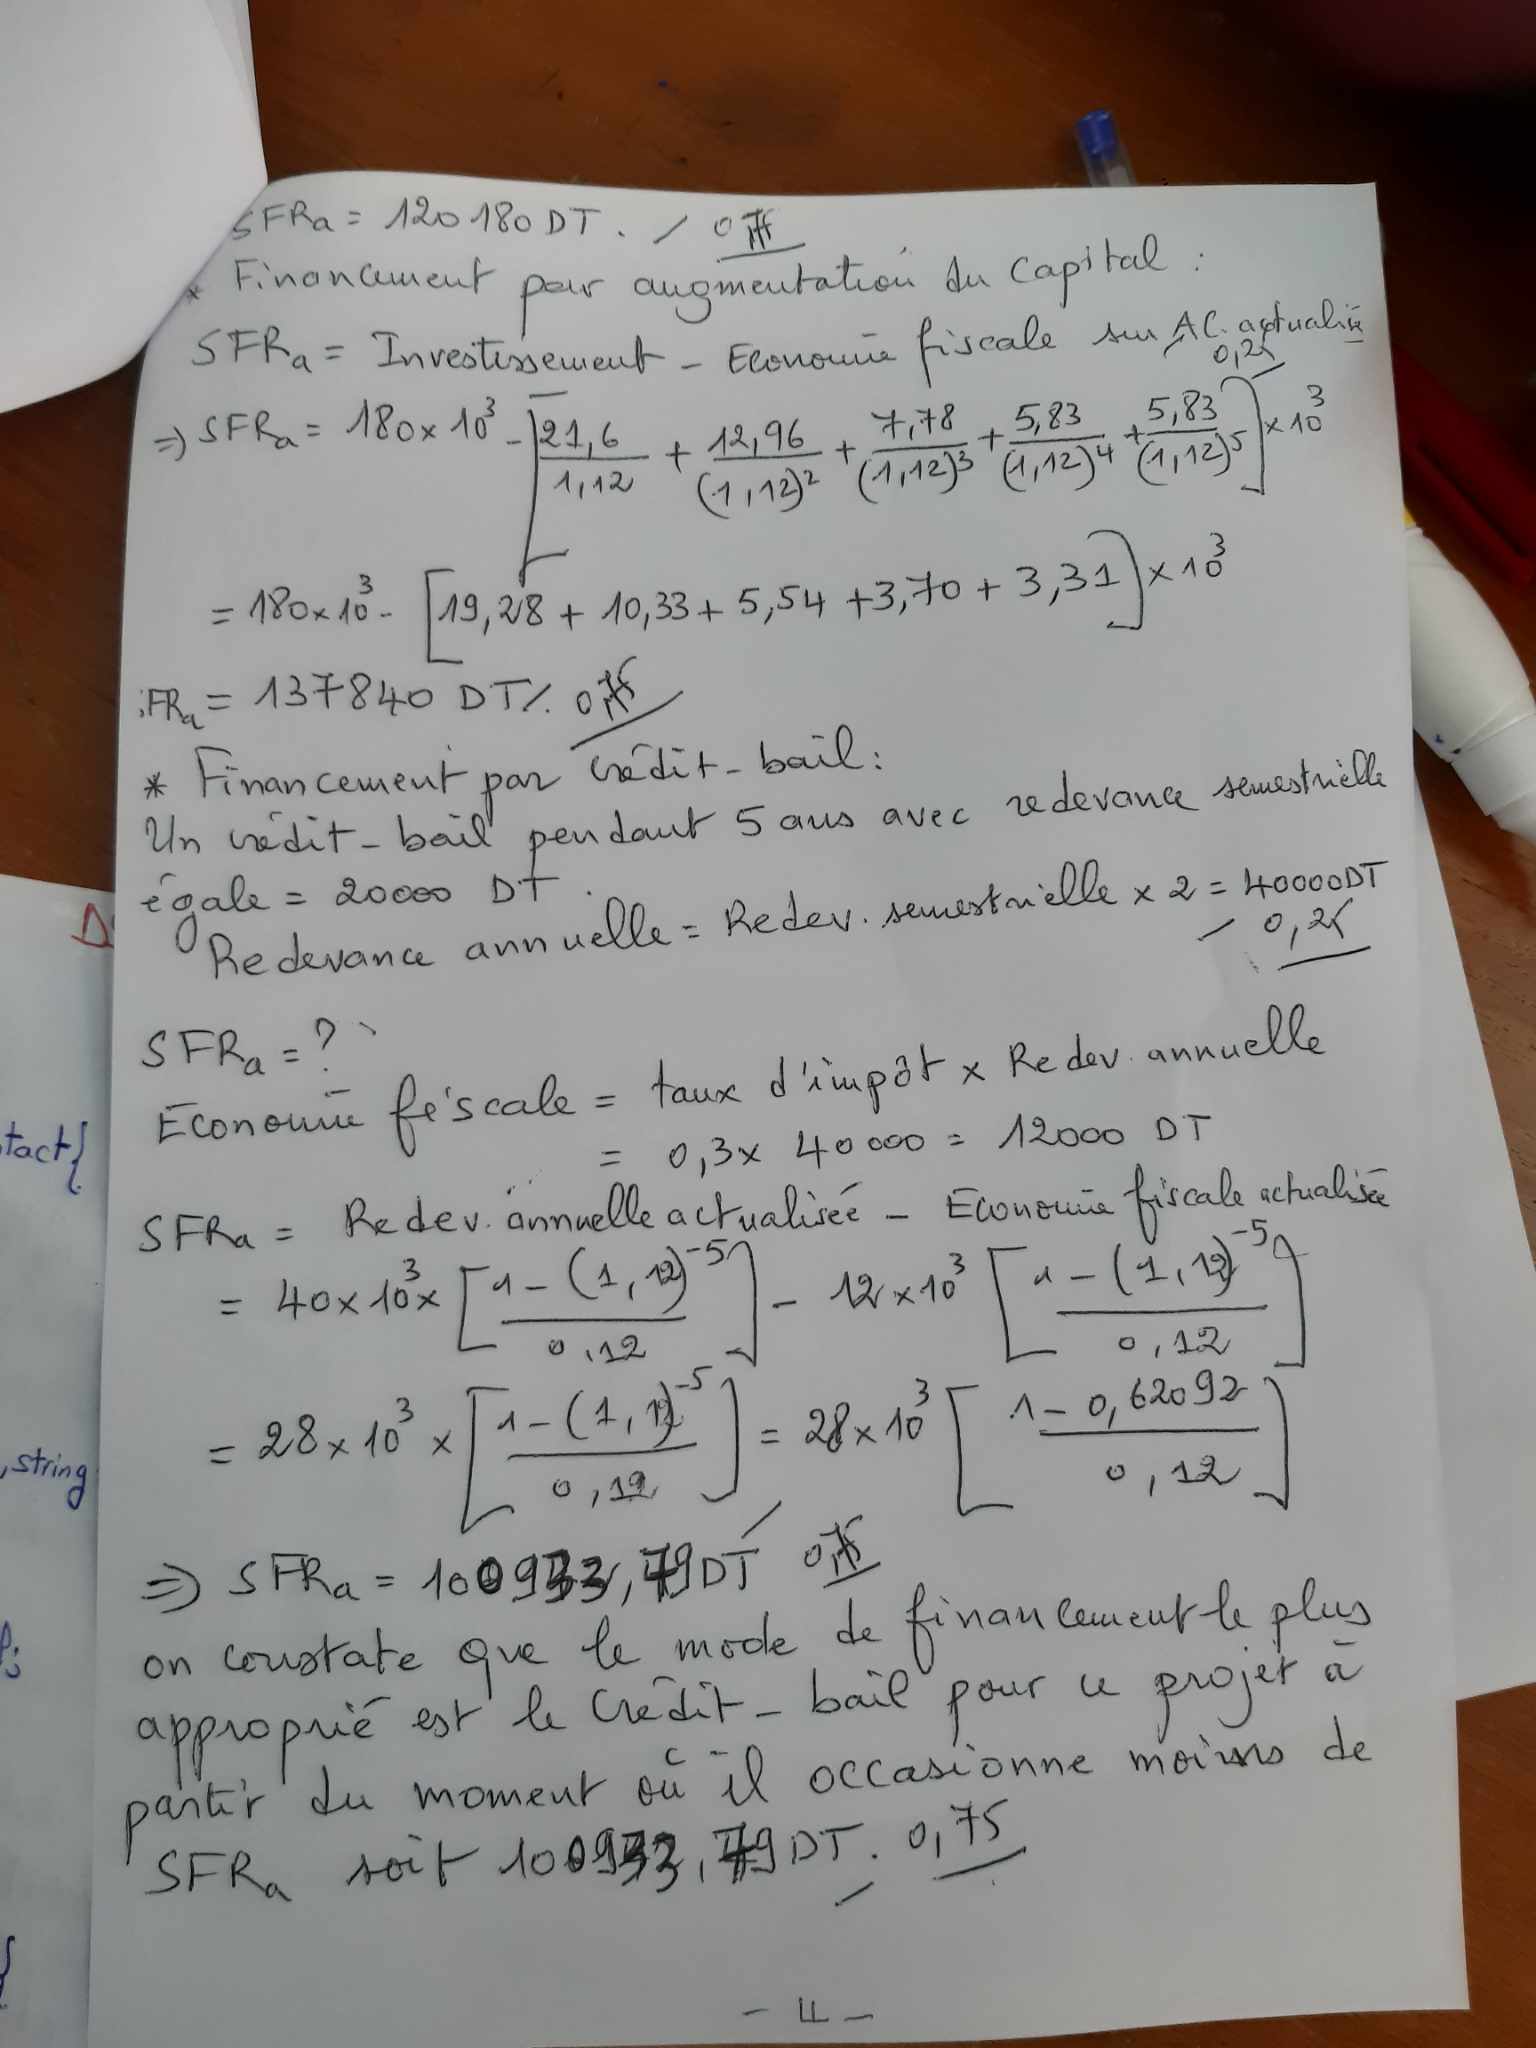 SFRa = 120 180 DT. / 0,75
* Financement par augmentation du Capital :
SFRa = Investissement - Economie fiscale sur AC. actualisée
0,25
=> SFRa = 180 x 10³ - [21,6/1,12 + 12,96/(1,12)² + 7,78/(1,12)³ + 5,83/(1,12)⁴ + 5,83/(1,12)⁵] x 10³
= 180 x 10³ - [19,28 + 10,33 + 5,54 + 3,70 + 3,31] x 10³
FRa = 137840 DT /. 0,75
* Financement par Crédit-bail :
Un crédit-bail pendant 5 ans avec redevance semestrielle
égale = 20000 DT.
Redevance annuelle = Redev. semestrielle x 2 = 40000 DT
0,25
SFRa = ?
Economie fiscale = taux d'impôt x Redev. annuelle
= 0,3 x 40 000 = 12000 DT
SFRa = Redev. annuelle actualisée - Economie fiscale actualisée
= 40 x 10³ x [1 - (1,12)⁻⁵ / 0,12] - 12 x 10³ [1 - (1,12)⁻⁵ / 0,12]
= 28 x 10³ x [1 - (1,12)⁻⁵ / 0,12] = 28 x 10³ [1 - 0,62092 / 0,12]
=> SFRa = DT 0,75
on constate que le mode de financement le plus
approprié est le Crédit-bail pour ce projet à
partir du moment où il occasionne moins de
SFRa soit DT. 0,75
- 4 -
tact{
, string